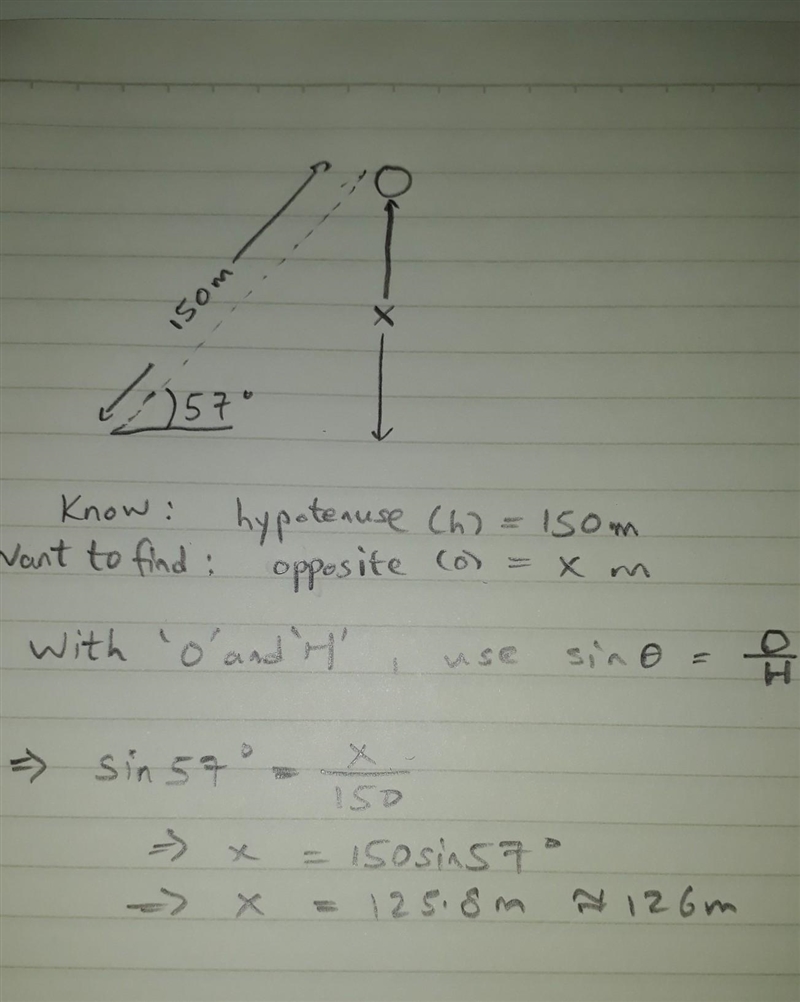 150m
x
57°
Know: hypotenuse (h) = 150m
Want to find: opposite (o) = x m
With 'O' and 'H', use sin θ = O/H
⇒ sin 57° = x/150
⇒ x = 150sin57°
⇒ x = 125.8m ≈ 126m